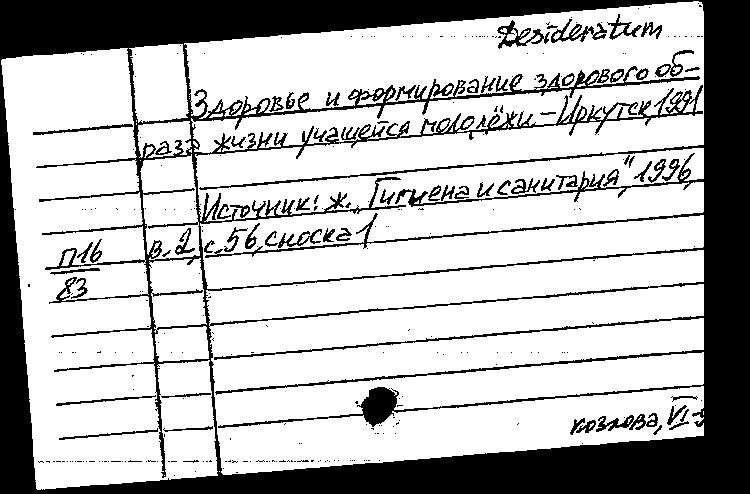 Desideratum
Здоровье и формирование здорового об-
раза жизни учащейся молодёжи.-Иркутск, 1991
Источник: ж. „Гигиена и санитария", 1996,
в.2, с.56, сноска 1
П16
83
Козлова, VI-